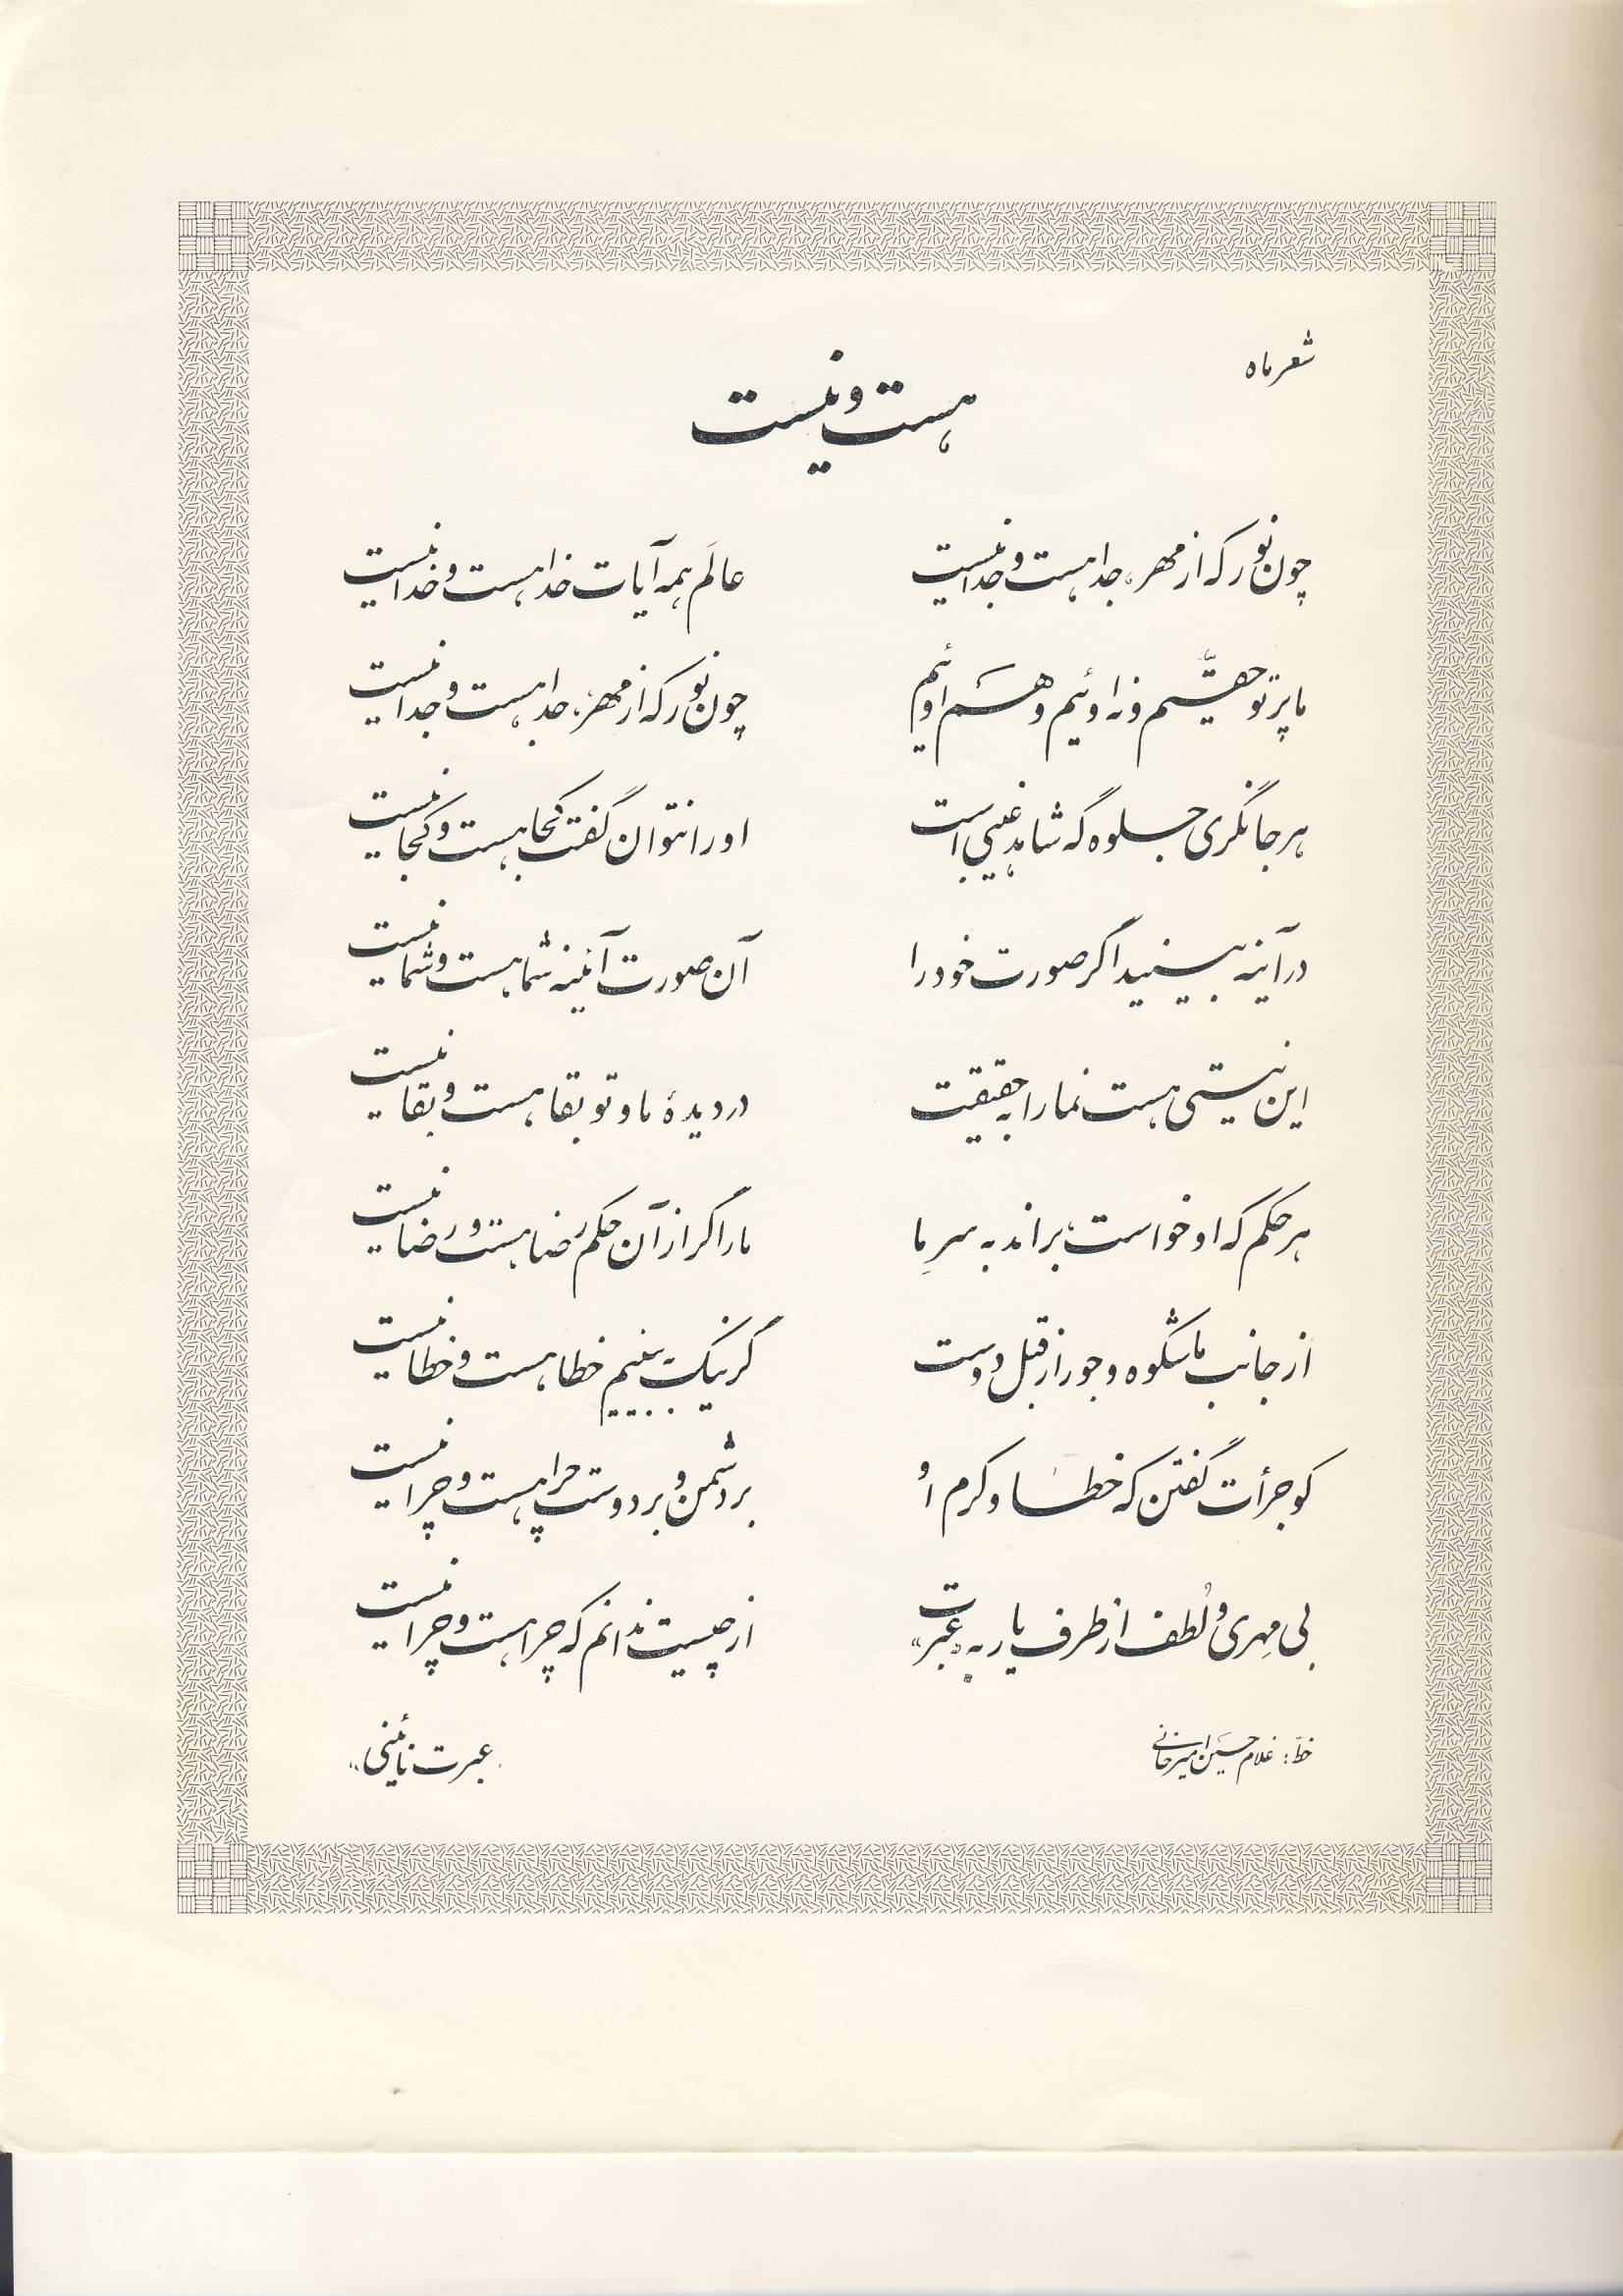 شعر ماه
هست و نیست
چون نور که از مهر، جدا هست و جدا نیست
عالَم همه آیات خدا هست و خدا نیست
ما پرتو حقّیم و نه اوئیم و هم اوئیم
چون نور که از مهر، جدا هست و جدا نیست
هر جا نگری جلوه گه شاهد غیبی است
او را نتوان گفت کجا هست و کجا نیست
در آینه ببینید اگر صورت خود را
آن صورت آئینه شما هست و شما نیست
این نیستی هست نما را به حقیقت
در دیدهٔ ما و تو بقا هست و بقا نیست
هر حکم که او خواست براند به سرِ ما
ما را گر از آن حکم رضا هست و رضا نیست
از جانب ما شکوه و جور از قبل دوست
گر نیک ببینیم خطا هست و خطا نیست
کو جرأت گفتن که خطا و کرم او
بر دشمن و بر دوست چرا هست و چرا نیست
بی مِهری و لُطف از طرف یار به «عبرت»
از چیست ندانم که چرا هست و چرا نیست
خطّ: غلامحسین امیرخانی
«عبرت نائینی»